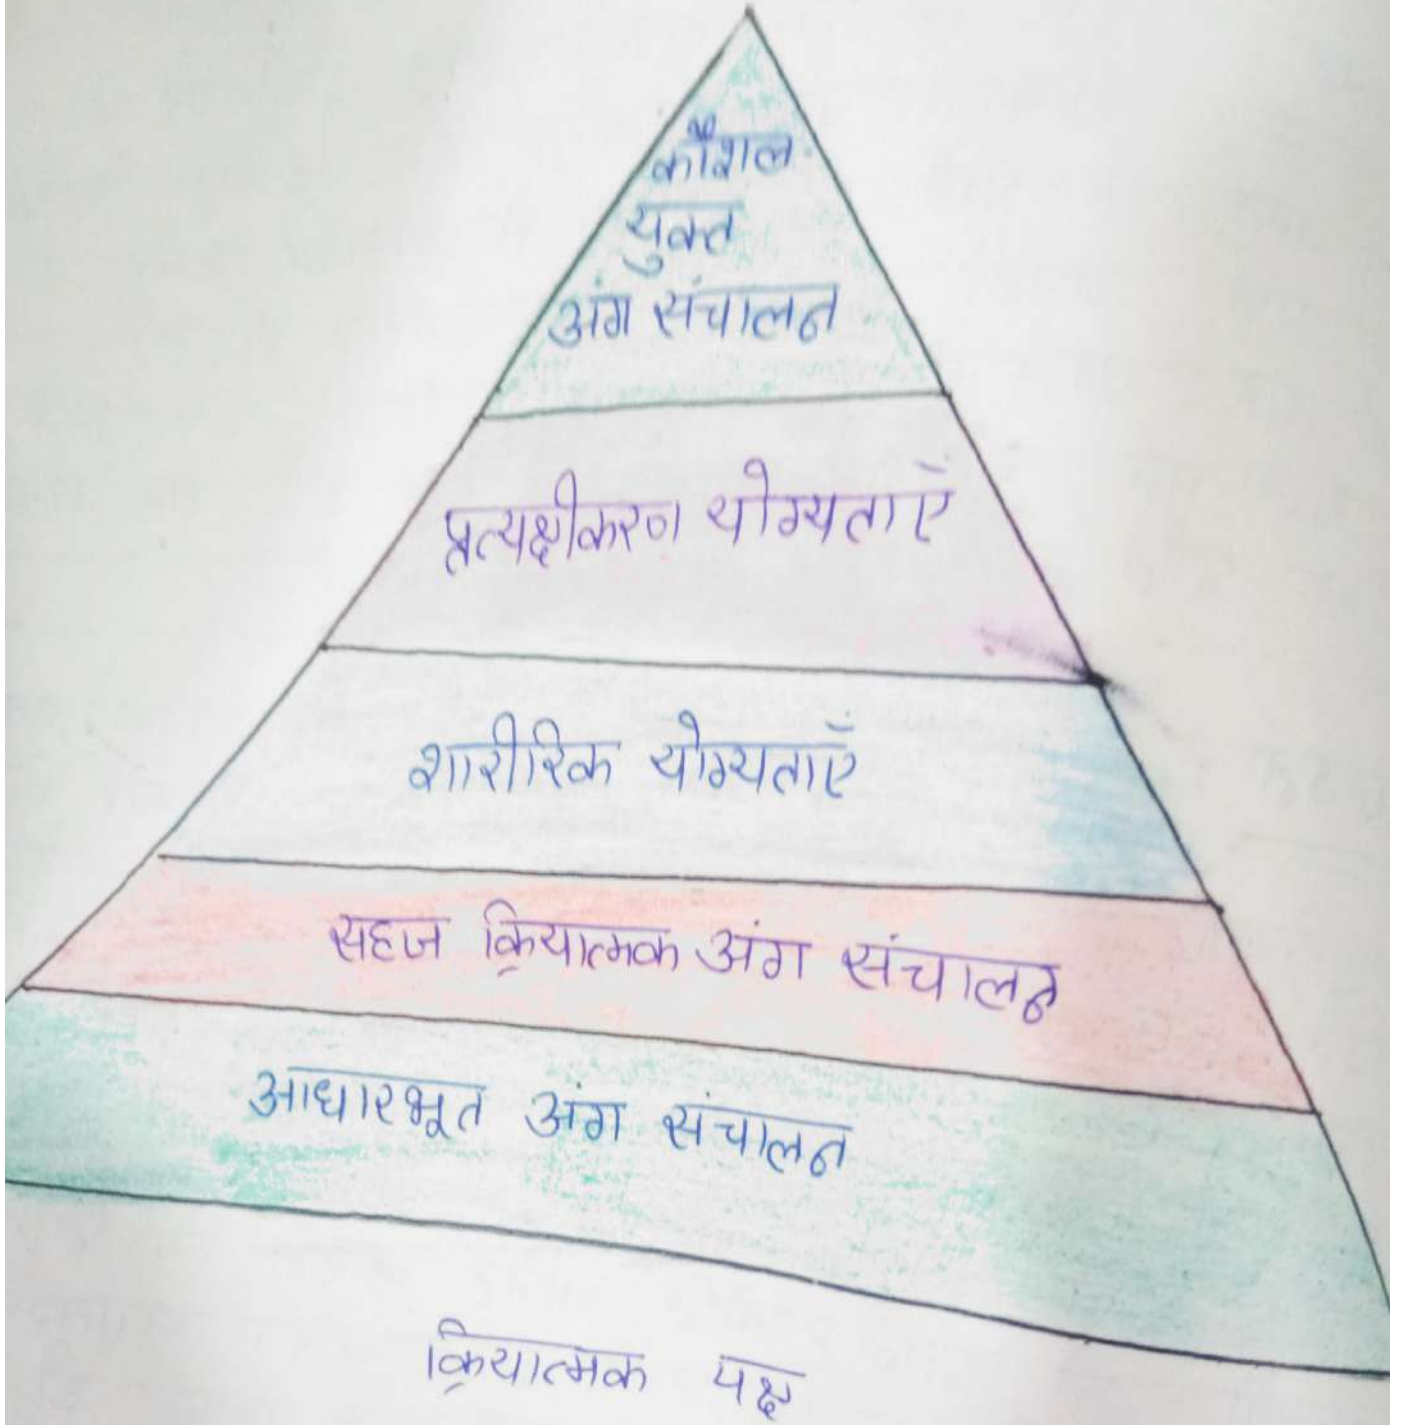 कौशल
युक्त
अंग संचालन
प्रत्यक्षीकरण योग्यताएँ
शारीरिक योग्यताएँ
सहज क्रियात्मक अंग संचालन
आधारभूत अंग संचालन
क्रियात्मक पक्ष